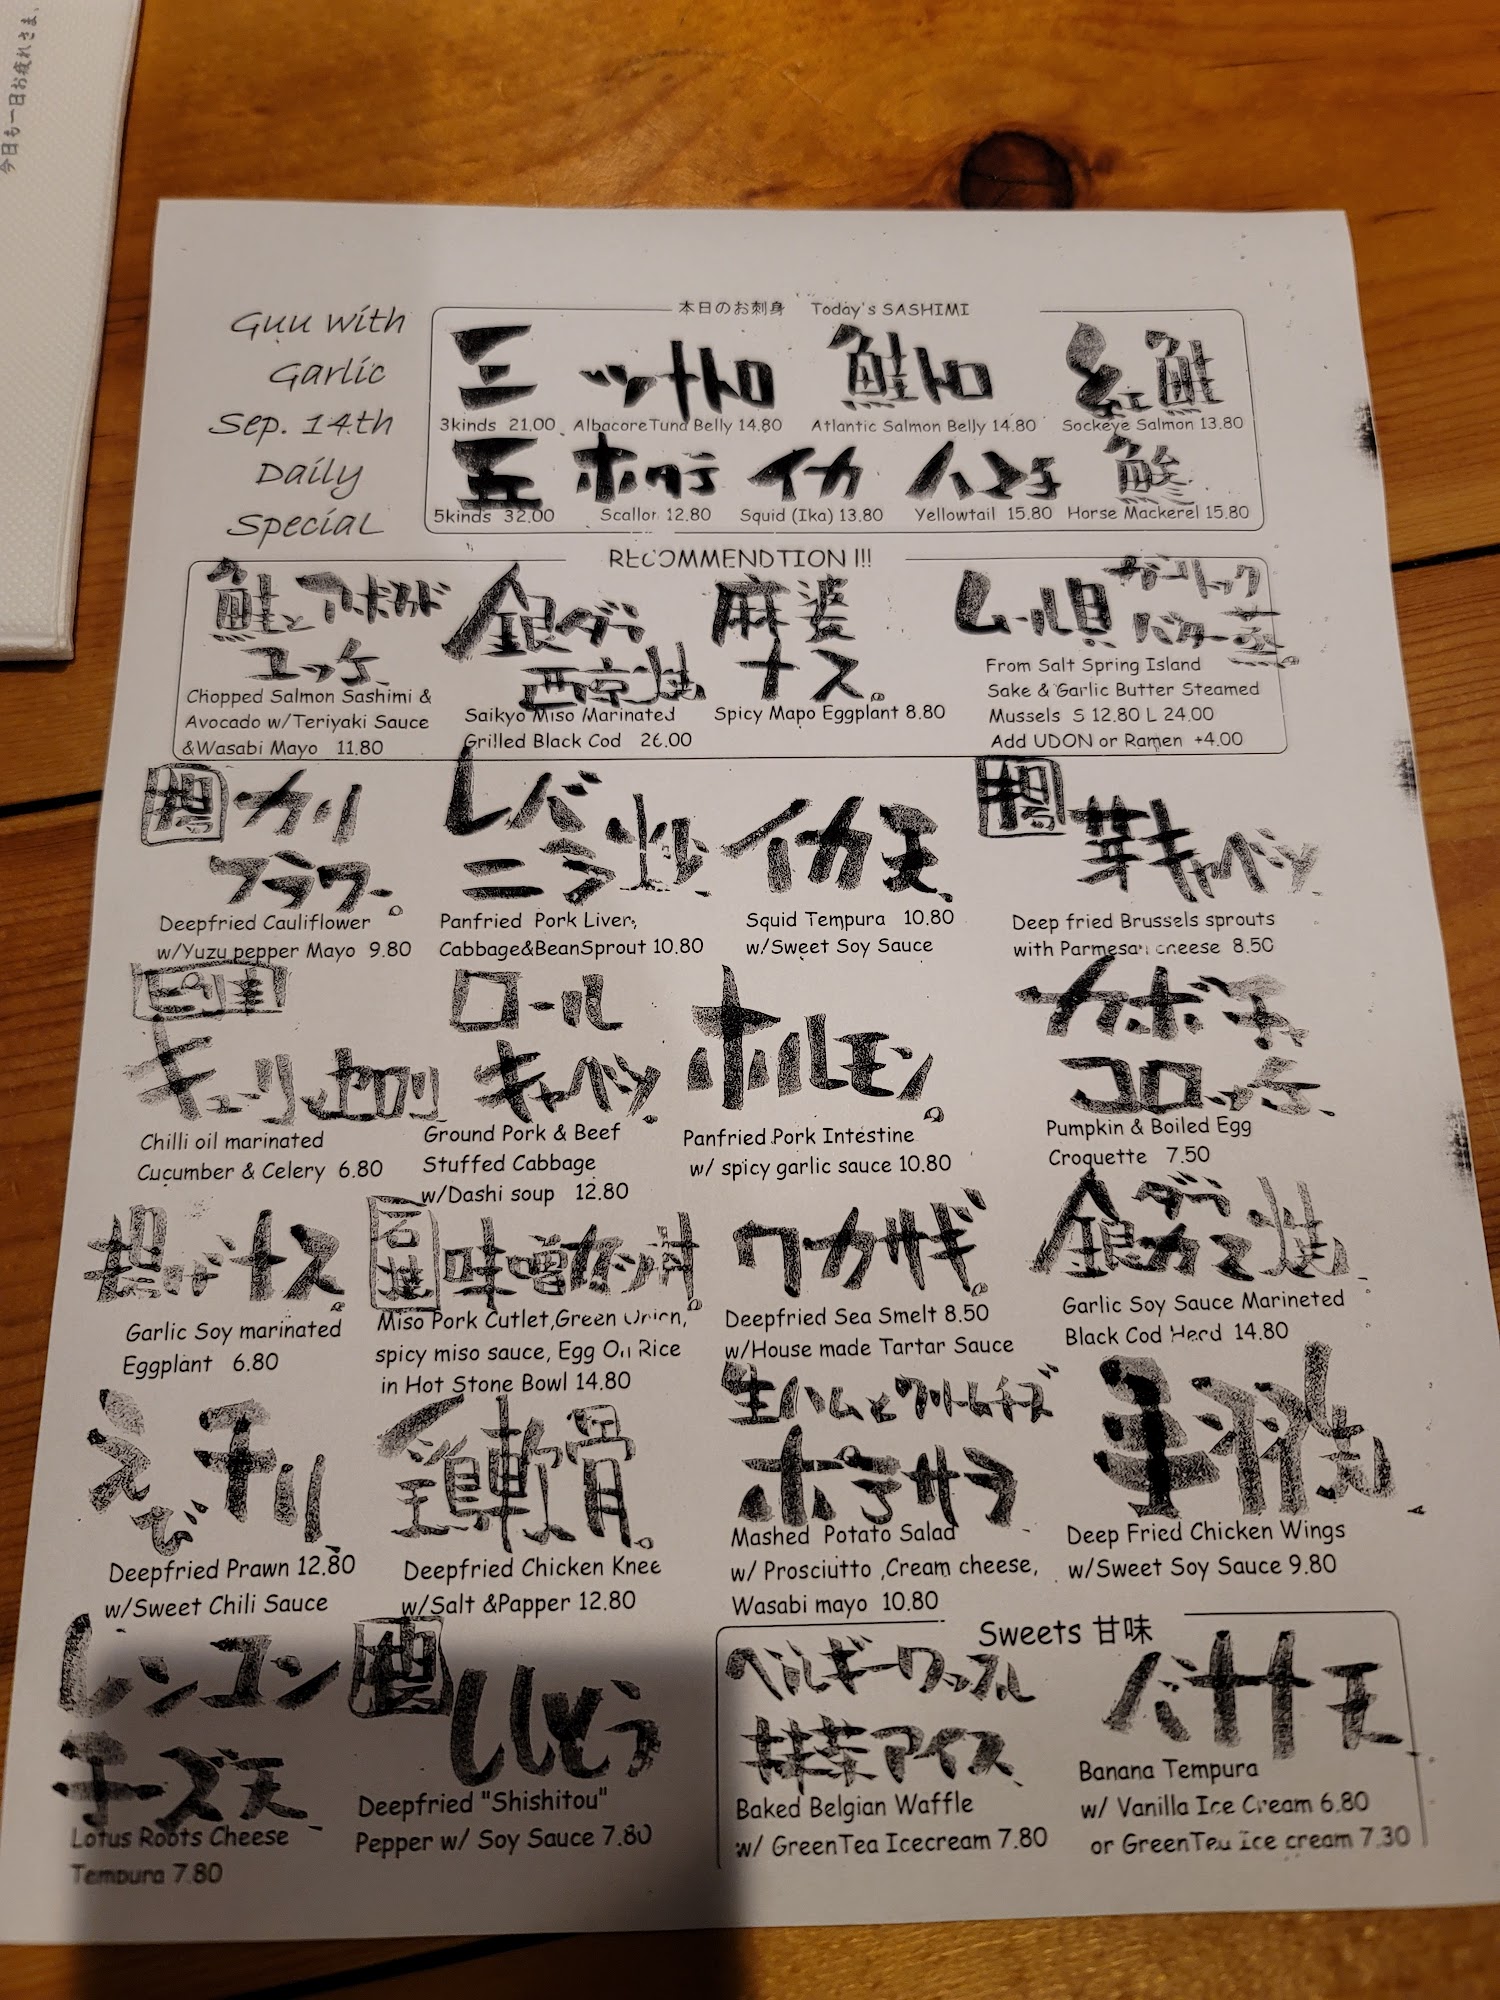 今日も一日お疲れさま。
Guu with
Garlic
Sep. 14th
Daily
Special
本日のお刺身 Today's SASHIMI
三 ッナトロ 鮭トロ 紅鮭
3kinds 21.00 Albacore Tuna Belly 14.80 Atlantic Salmon Belly 14.80 Sockeye Salmon 13.80
五 ホタテ イカ ハマチ
5kinds 32.00 Scallop 12.80 Squid (Ika) 13.80 Yellowtail 15.80 Horse Mackerel 15.80
RECOMMENDTION !!!
鮭とアボカド
ユッケ
Chopped Salmon Sashimi &
Avocado w/Teriyaki Sauce
&Wasabi Mayo 11.80
銀ダラ
西京焼
Saikyo Miso Marinated
Grilled Black Cod 26.00
麻婆
ナス。
Spicy Mapo Eggplant 8.80
ムール貝 ガーリック
バター蒸
From Salt Spring Island
Sake & Garlic Butter Steamed
Mussels S 12.80 L 24.00
Add UDON or Ramen +4.00
カリ
フラワー。
Deepfried Cauliflower
w/Yuzu pepper Mayo 9.80
レバ
ニラ炒
Panfried Pork Liver,
Cabbage&BeanSprout 10.80
イカ天
Squid Tempura 10.80
w/Sweet Soy Sauce
芽キャベツ
Deep fried Brussels sprouts
with Parmesan cheese 8.50
ピリ辛
キューリセロリ
Chilli oil marinated
Cucumber & Celery 6.80
ロール
キャベツ
Ground Pork & Beef
Stuffed Cabbage
w/Dashi soup 12.80
ホルモン。
Panfried Pork Intestine
w/ spicy garlic sauce 10.80
カボチャ
コロッケ
Pumpkin & Boiled Egg
Croquette 7.50
揚げナス。
Garlic Soy marinated
Eggplant 6.80
石焼 味噌カツ丼。
Miso Pork Cutlet,Green Onion,
spicy miso sauce, Egg On Rice
in Hot Stone Bowl 14.80
ワカサギ。
Deepfried Sea Smelt 8.50
w/House made Tartar Sauce
銀ダラカマ焼
Garlic Soy Sauce Marineted
Black Cod Head 14.80
えびチリ
Deepfried Prawn 12.80
w/Sweet Chili Sauce
軟骨。
Deepfried Chicken Knee
w/Salt &Papper 12.80
生ハムとクリームチーズ
ポテサラ
Mashed Potato Salad
w/ Prosciutto ,Cream cheese,
Wasabi mayo 10.80
手羽先
Deep Fried Chicken Wings
w/Sweet Soy Sauce 9.80
レンコン
チーズ天
Lotus Roots Cheese
Tempura 7.80
ししとう
Deepfried "Shishitou"
Pepper w/ Soy Sauce 7.80
Sweets 甘味
ベルギーワッフル
抹茶アイス
Baked Belgian Waffle
w/ GreenTea Icecream 7.80
バナナ天
Banana Tempura
w/ Vanilla Ice Cream 6.80
or GreenTea Ice cream 7.30